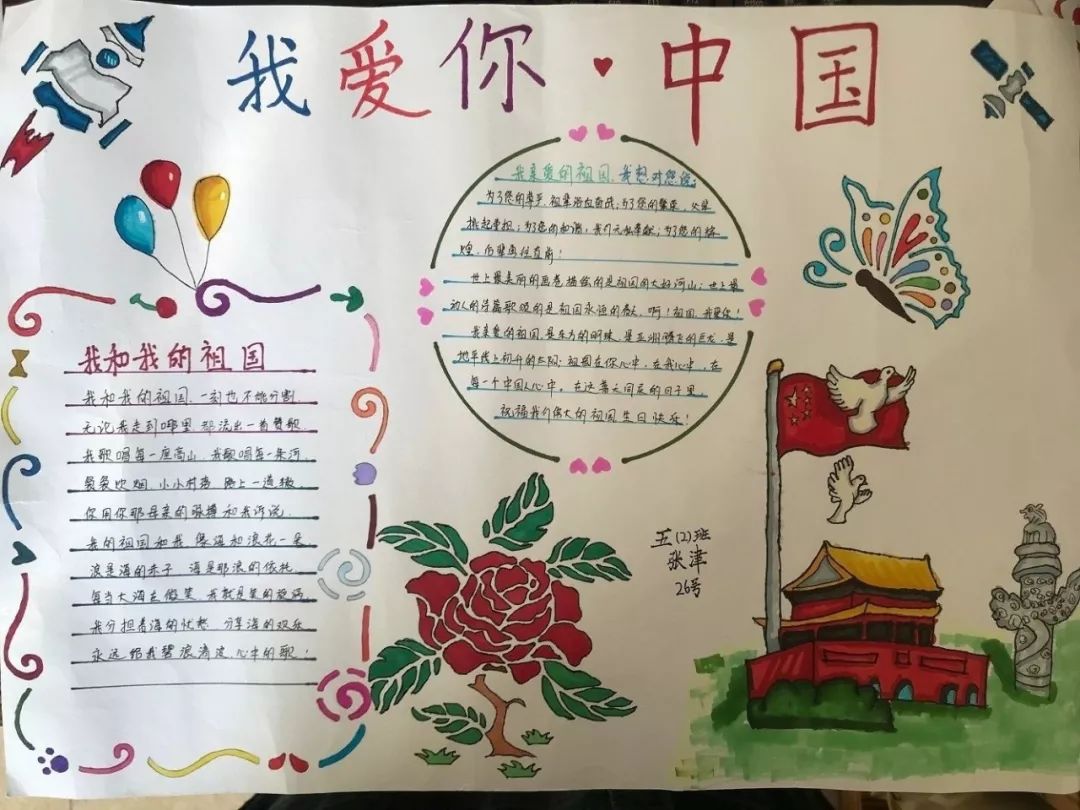 我爱你·中国
我亲爱的祖国，我想对您说：
为了您的尊严，祖辈浴血奋战；为了您的繁荣，父辈
挑起重担；为了您的和谐，我们无私奉献；为了您的辉
煌，后辈勇往直前！
世上最美丽的画卷描绘的是祖国的大好河山；世上最
动人的诗篇歌颂的是祖国永恒的春天，啊！祖国，我爱你！
我亲爱的祖国，是东方的明珠，是亚洲腾飞的巨龙，是
地平线上初升的太阳；祖国在你心中，在我心中，在
每一个中国人心中。在这普天同庆的日子里，
祝福我们伟大的祖国生日快乐！
我和我的祖国
我和我的祖国，一刻也不能分割，
无论我走到哪里，都流出一首赞歌
我歌唱每一座高山，我歌唱每一条河，
袅袅炊烟，小小村落，路上一道辙
你用你那母亲的脉搏和我诉说，
我的祖国和我，像海和浪花一朵
浪是海的赤子，海是那浪的依托
每当大海在微笑，我就是笑的旋涡
我分担着海的忧愁，分享海的欢乐
永远给我碧浪清波，心中的歌！
五(2)班
张津
26号